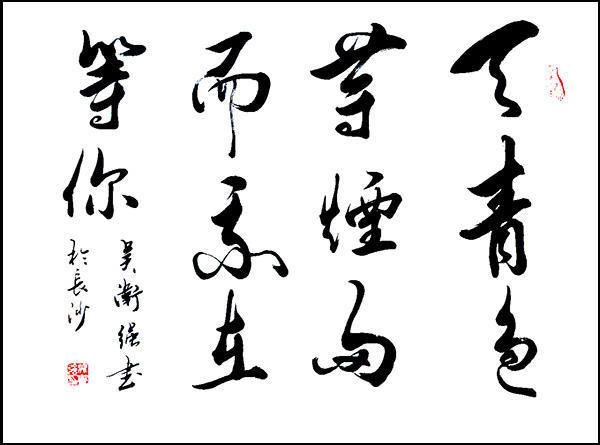 天青色
等煙雨
而我在
等你
吴衛强書
於長沙